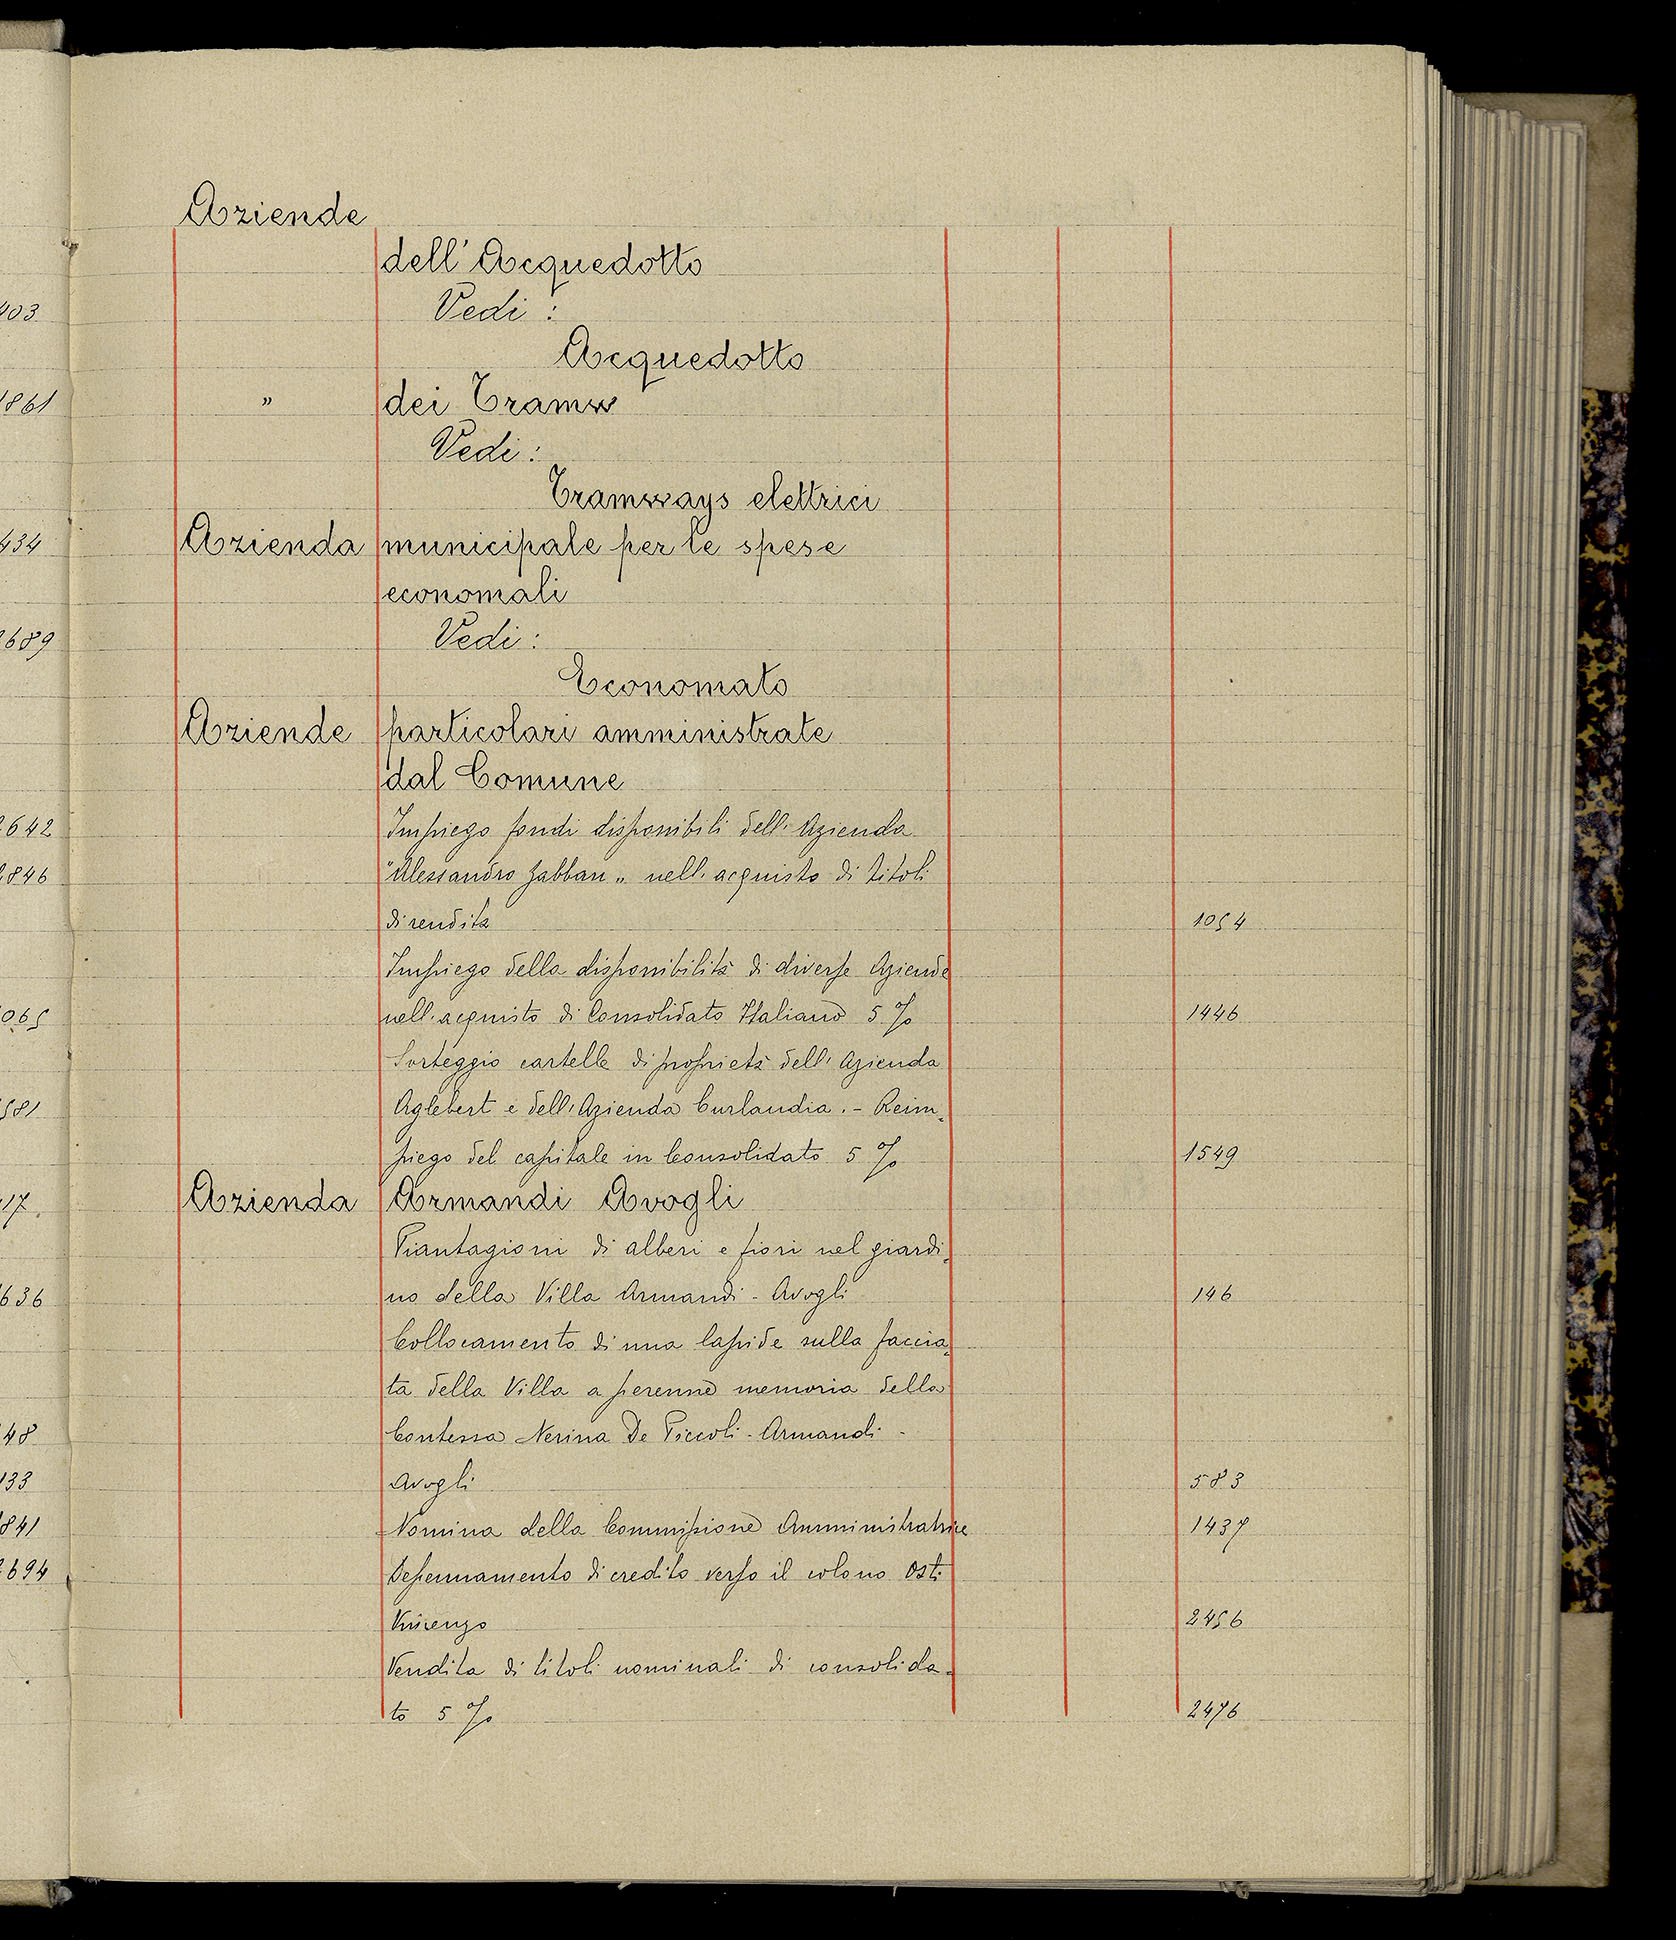 Aziende
dell'Acquedotto
Vedi:
Acquedotto
" dei Tramw
Vedi:
Tramways elettrici
Azienda municipale per le spese
economali
Vedi:
Economato
Aziende particolari amministrate
dal Comune
Impiego fondi disponibili dell'Azienda
"Alessandro Zabban" nell'acquisto di titoli
di rendita 1054
Impiego della disponibilità di diverse Aziende
nell'acquisto di Consolidato Italiano 5% 1446
Sorteggio cartelle di proprietà dell'Azienda
Aglebert e dell'Azienda Curlandia. - Reim-
piego del capitale in Consolidato 5% 1549
Azienda Armandi Avogli
Piantagioni di alberi e fiori nel giardi-
no della Villa Armandi - Avogli 146
Collocamento di una lapide sulla faccia-
ta della Villa a perenne memoria della
Contessa Nerina De Piccoli - Armandi -
Avogli 583
Nomina della Commissione Amministratrice 1437
Depennamento di credito verso il colono Osti
Vincenzo 2456
Vendita di titoli nominali di consolida-
to 5% 2476
403
1861
434
689
642
846
065
581
17
636
48
133
841
694